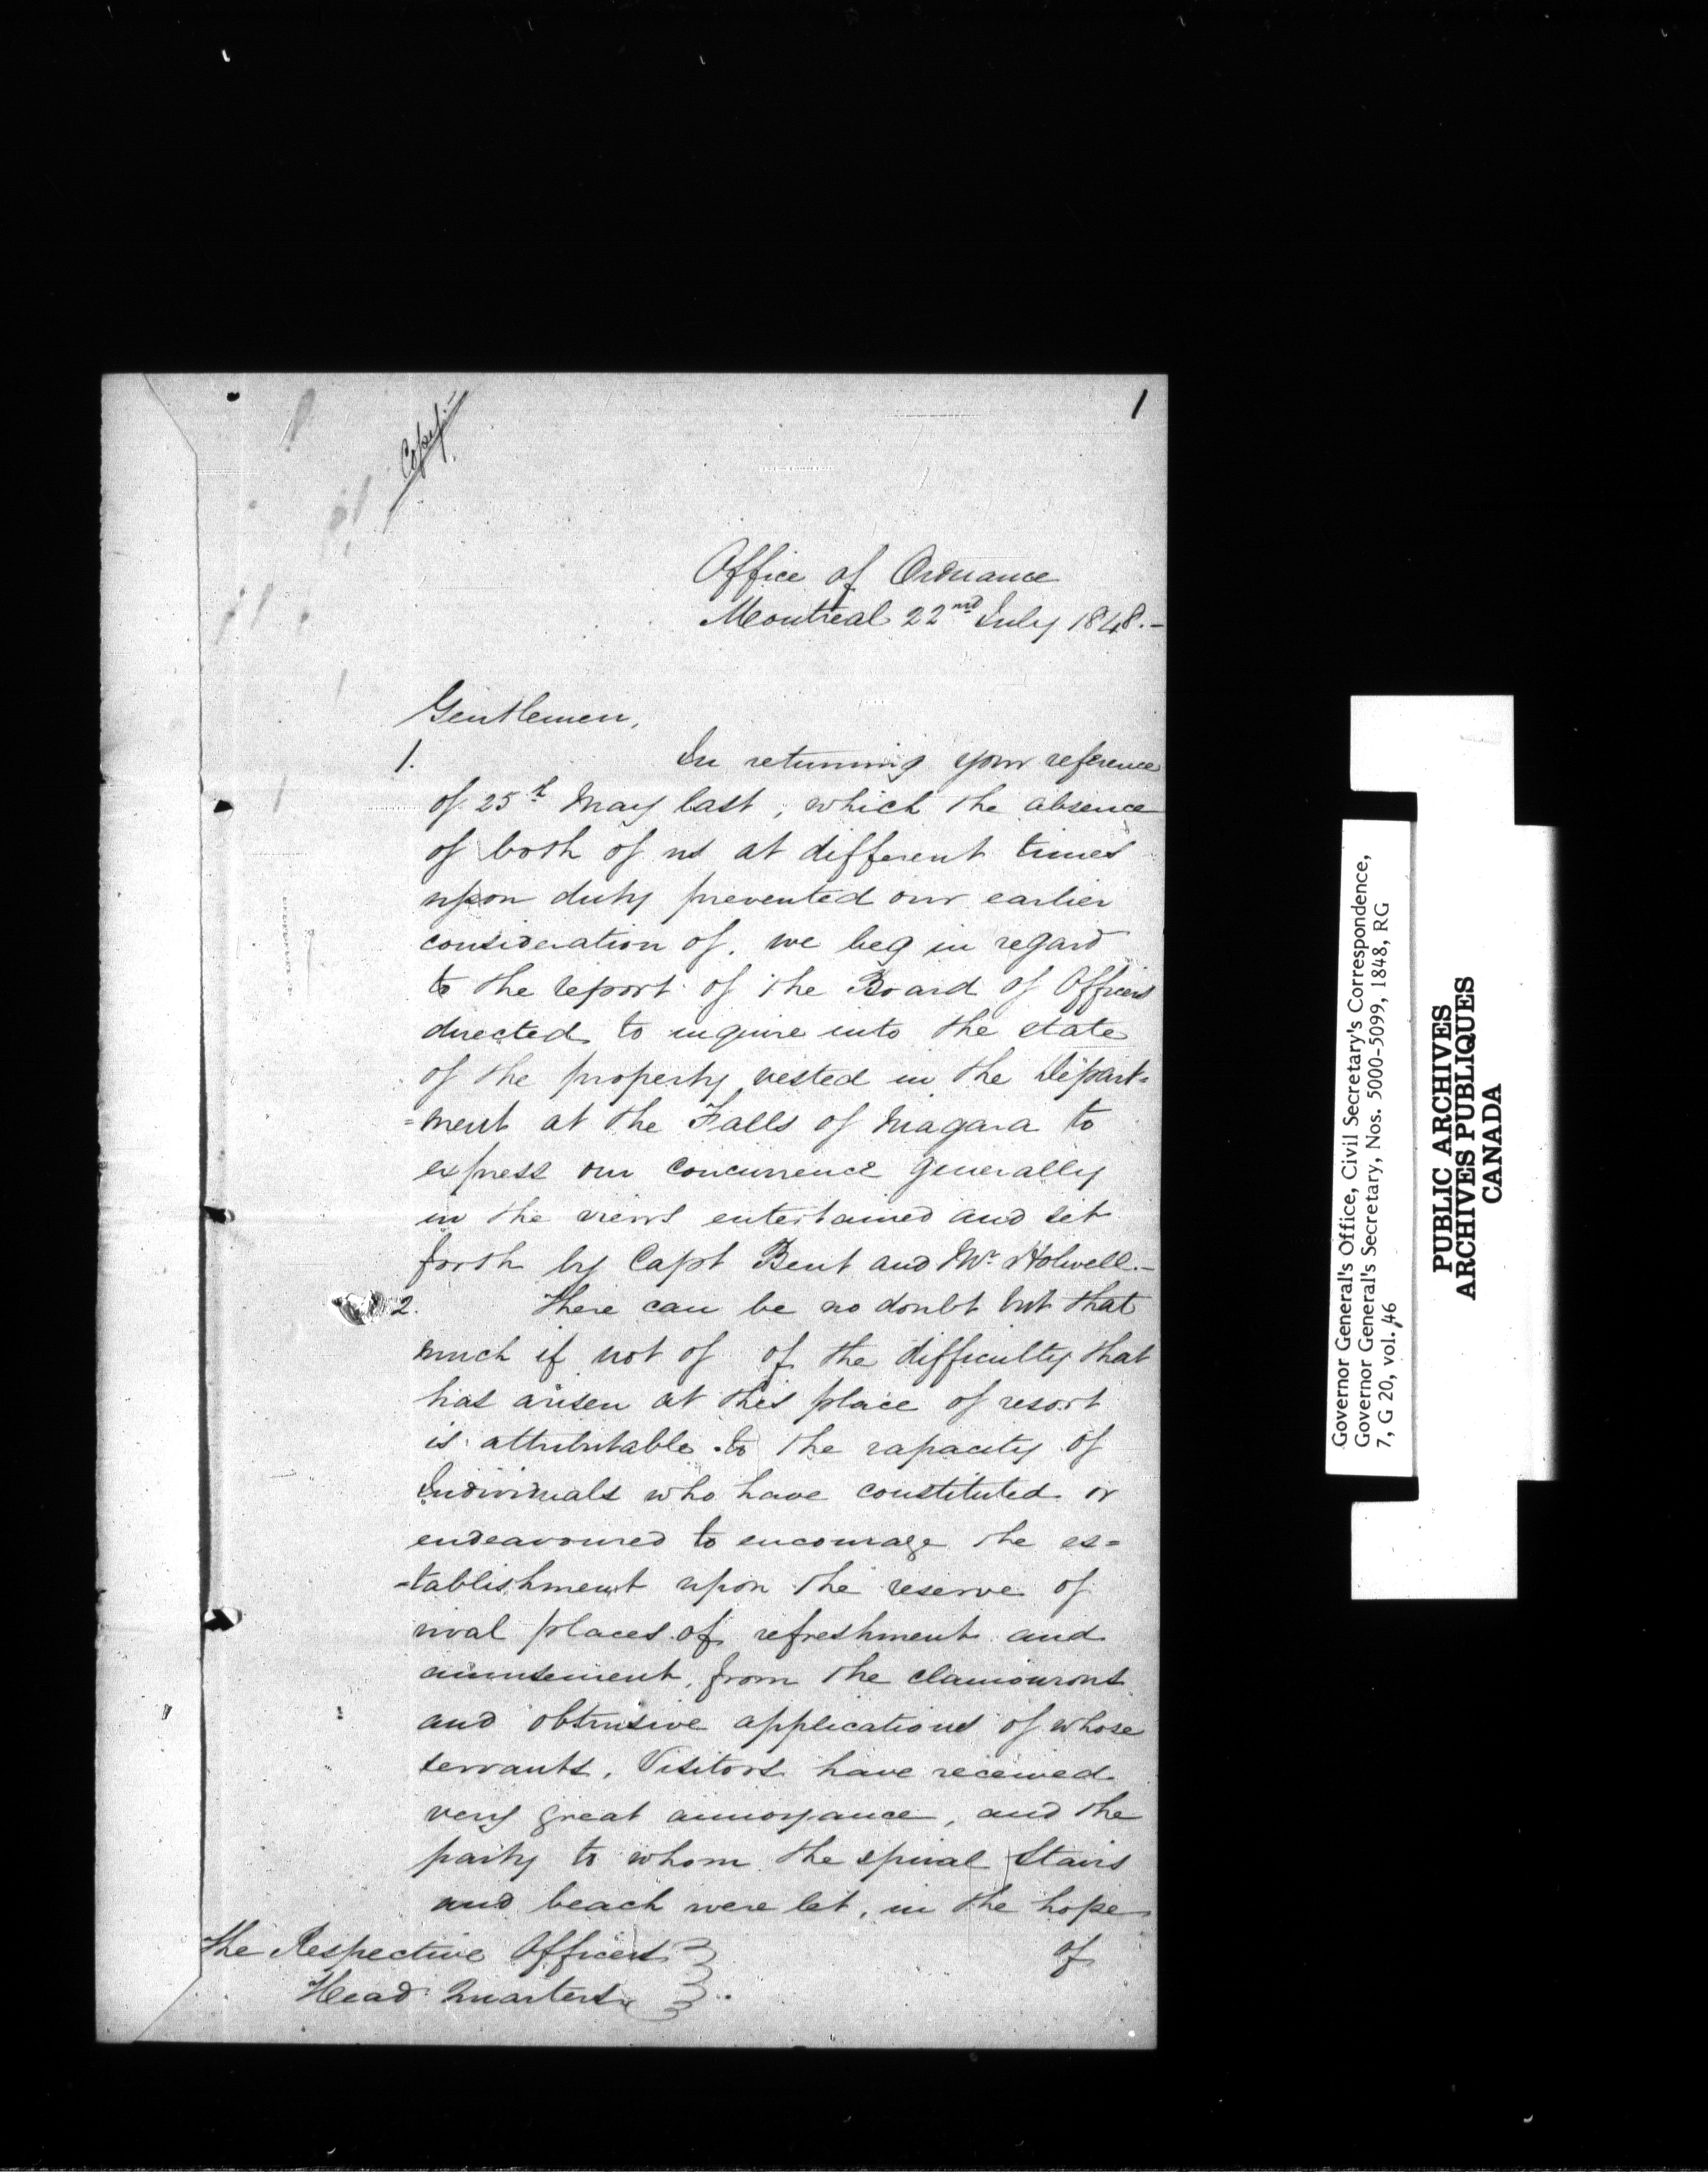 1
Copy.-
Office of Ordnance
Montreal 22nd July 1848.-
Gentlemen,
1. In returning your reference
of 25th May last, which the absence
of both of us at different times
upon duty prevented our earlier
consideration of, we beg in regard
to the report of the Board of Officers
directed to inquire into the state
of the property vested in the Depart=
=ment at the Falls of Niagara to
express our concurrence generally
in the views entertained and set
forth by Capt Bent and Mr. Holwell.-
2. There can be no doubt but that
much if not of of the difficulty that
has arisen at this place of resort
is attributable to the rapacity of
Individuals who have constituted or
endeavoured to encourage the es=
=tablishment upon the reserve of
rival places of refreshment and
amusement, from the clamourous
and obtrusive applications of whose
servants, Visitors have received
very great annoyance, and the
party to whom the spiral Stairs
and beach were let, in the hope
of
The Respective Officers
Head Quarters
Governor General's Office, Civil Secretary's Correspondence,
Governor General's Secretary, Nos. 5000-5099, 1848, RG
7, G 20, vol. 46
PUBLIC ARCHIVES
ARCHIVES PUBLIQUES
CANADA